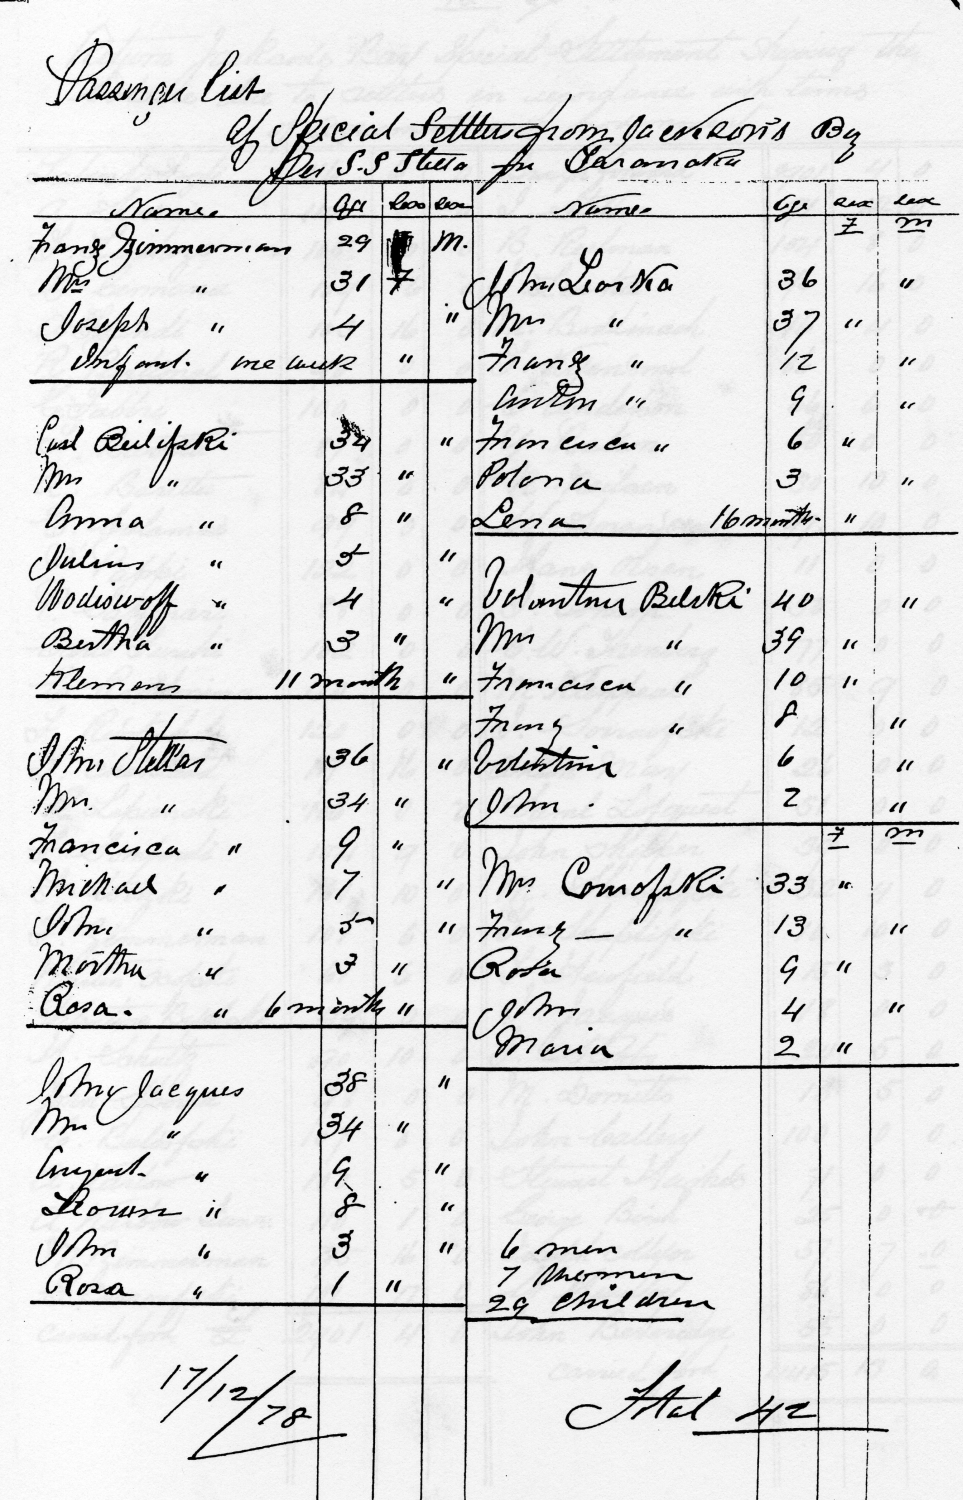 Passenger List
of Special Settlers from Jackson's By
Per S.S Stella for Taranaki
Name. age sex sex
Franz Zimmerman 29 M.
Mrs " 31 F
Joseph " 4 "
Infant. one week "
Carl Beilifski 34 "
Mrs " 33 "
Anna " 8 "
Julius " 5 "
Wodiswoff " 4 "
Bertha " 3 "
Klemans 11 month "
John Stellas 36 "
Mrs. " 34 "
Francisca " 9 "
Michael " 7 "
John " 5 "
Martha " 3 "
Rosa. " 6 month "
John Jacques 38 "
Mrs " 34 "
August. " 9 "
" 8 "
John " 3 "
Rosa " 1 "
17/12/78
Name. age sex sex
F M
John Leoska 36 "
Mrs " 37 "
Franz " 12 "
Anton " 9 "
Francisca " 6 "
Polona 3 "
Lena 16 month. "
Volantine Belski 40 "
Mrs " 39 "
Francisca " 10 "
Franz " 8 "
Volentine 6 "
John. 2 "
F M
Mrs Comofski 33 "
Franz — " 13 "
Rosa 9 "
John 4 "
Maria 2 "
6 men
7 Women
29 Children
Total 42